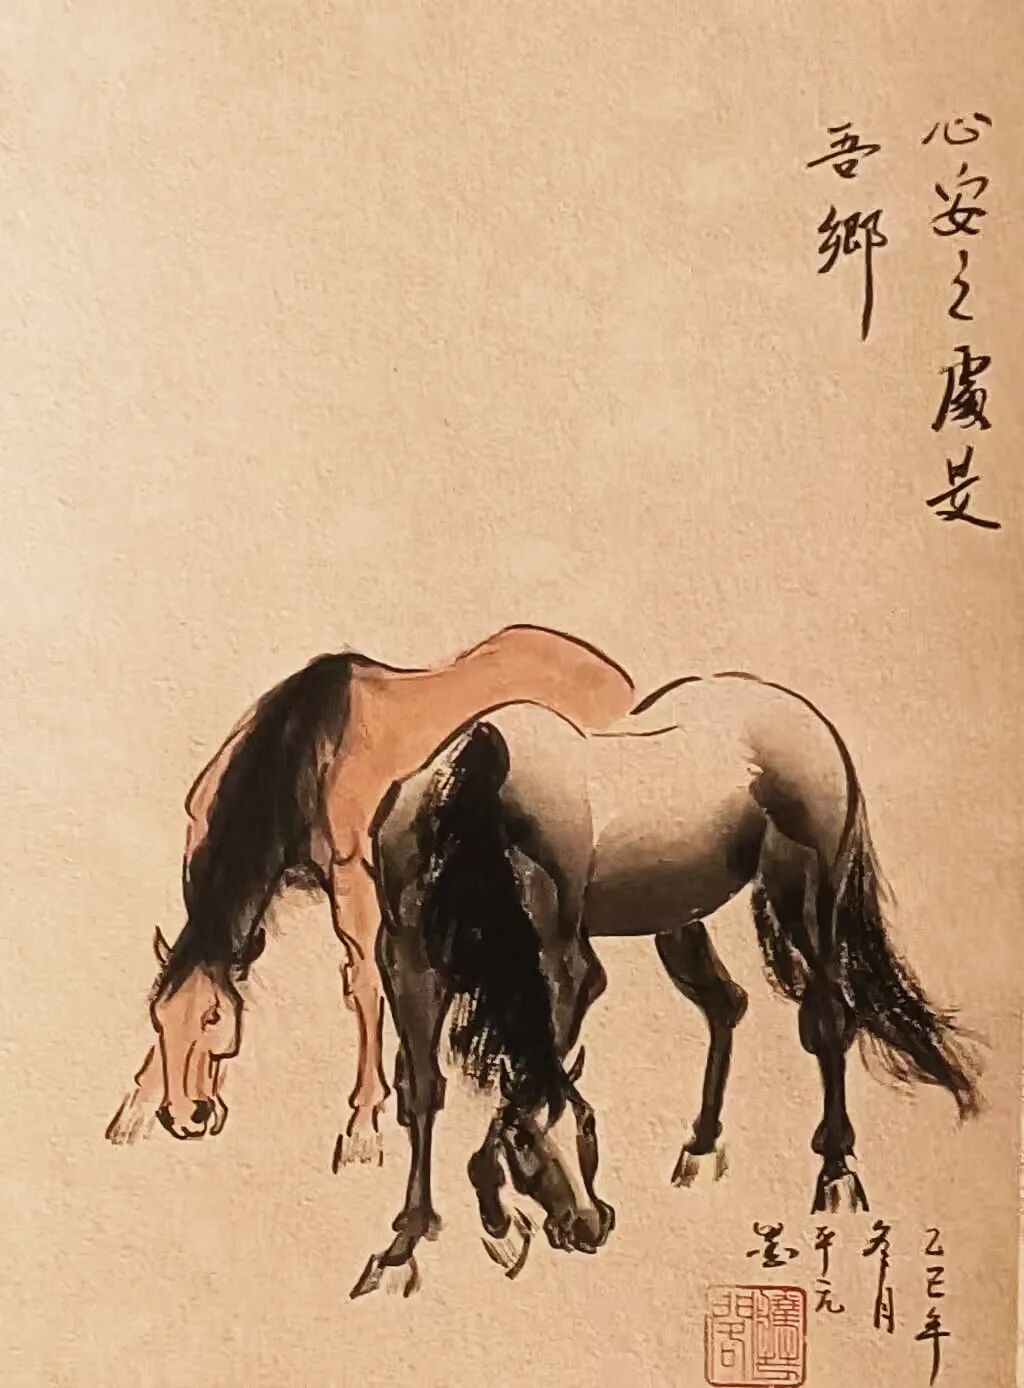 心安之處是
吾鄉
乙巳年
冬月
平元